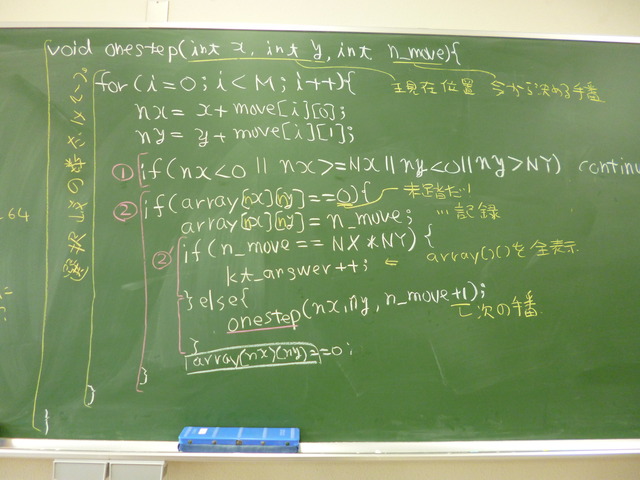 void onestep(int x, int y, int n_move){
現在位置 今から決める手番
for(i=0; i<M; i++){
nx = x+move[i][0];
ny = y+move[i][1];
① if(nx<0 || nx>=NX || ny<0 || ny>NY) continu
② if(array[nx][ny]==0){ 未踏だ
array[nx][ny]=n_move; 記録
②' if(n_move == NX*NY) {
kt_answer++; ← array()()を全表示
}else{
onestep(nx,ny,n_move+1);
次の手番
}
array(nx)(ny)==0;
}
}
}
64